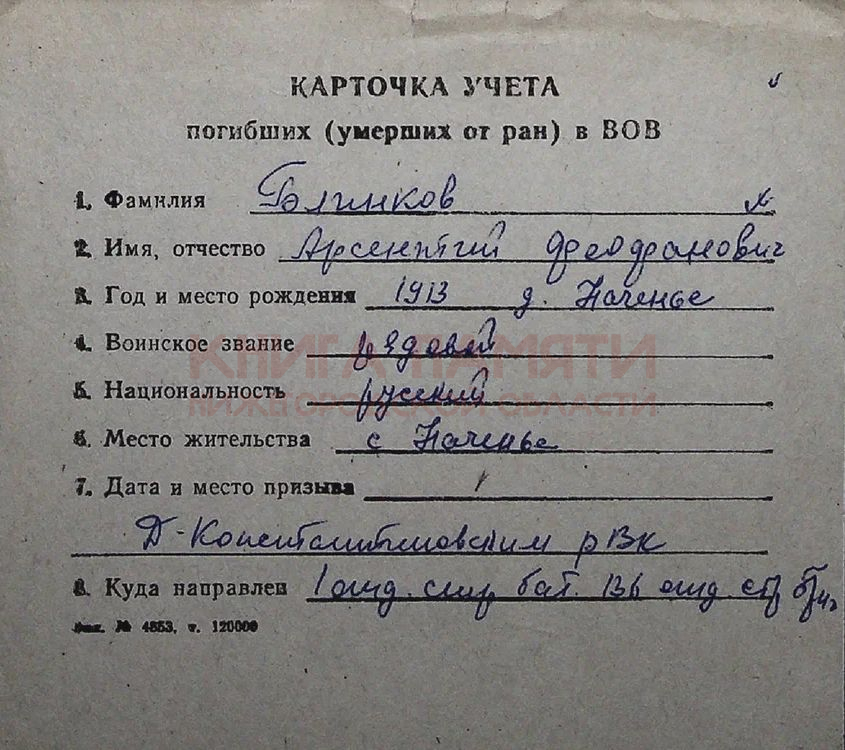 КАРТОЧКА УЧЕТА
погибших (умерших от ран) в ВОВ
1. Фамилия Блинков
2. Имя, отчество Арсентий
3. Год и место рождения 1913 д. Наченье
4. Воинское звание рядовой
5. Национальность русский
6. Место жительства с Наченье
7. Дата и место призыва
Д-Константиновским рВк
8. Куда направлен 1 отд. бат. 136 отд. стр бриг
Зак. № 4853, т. 120000
КНИГА ПАМЯТИ
НИЖЕГОРОДСКОЙ ОБЛАСТИ